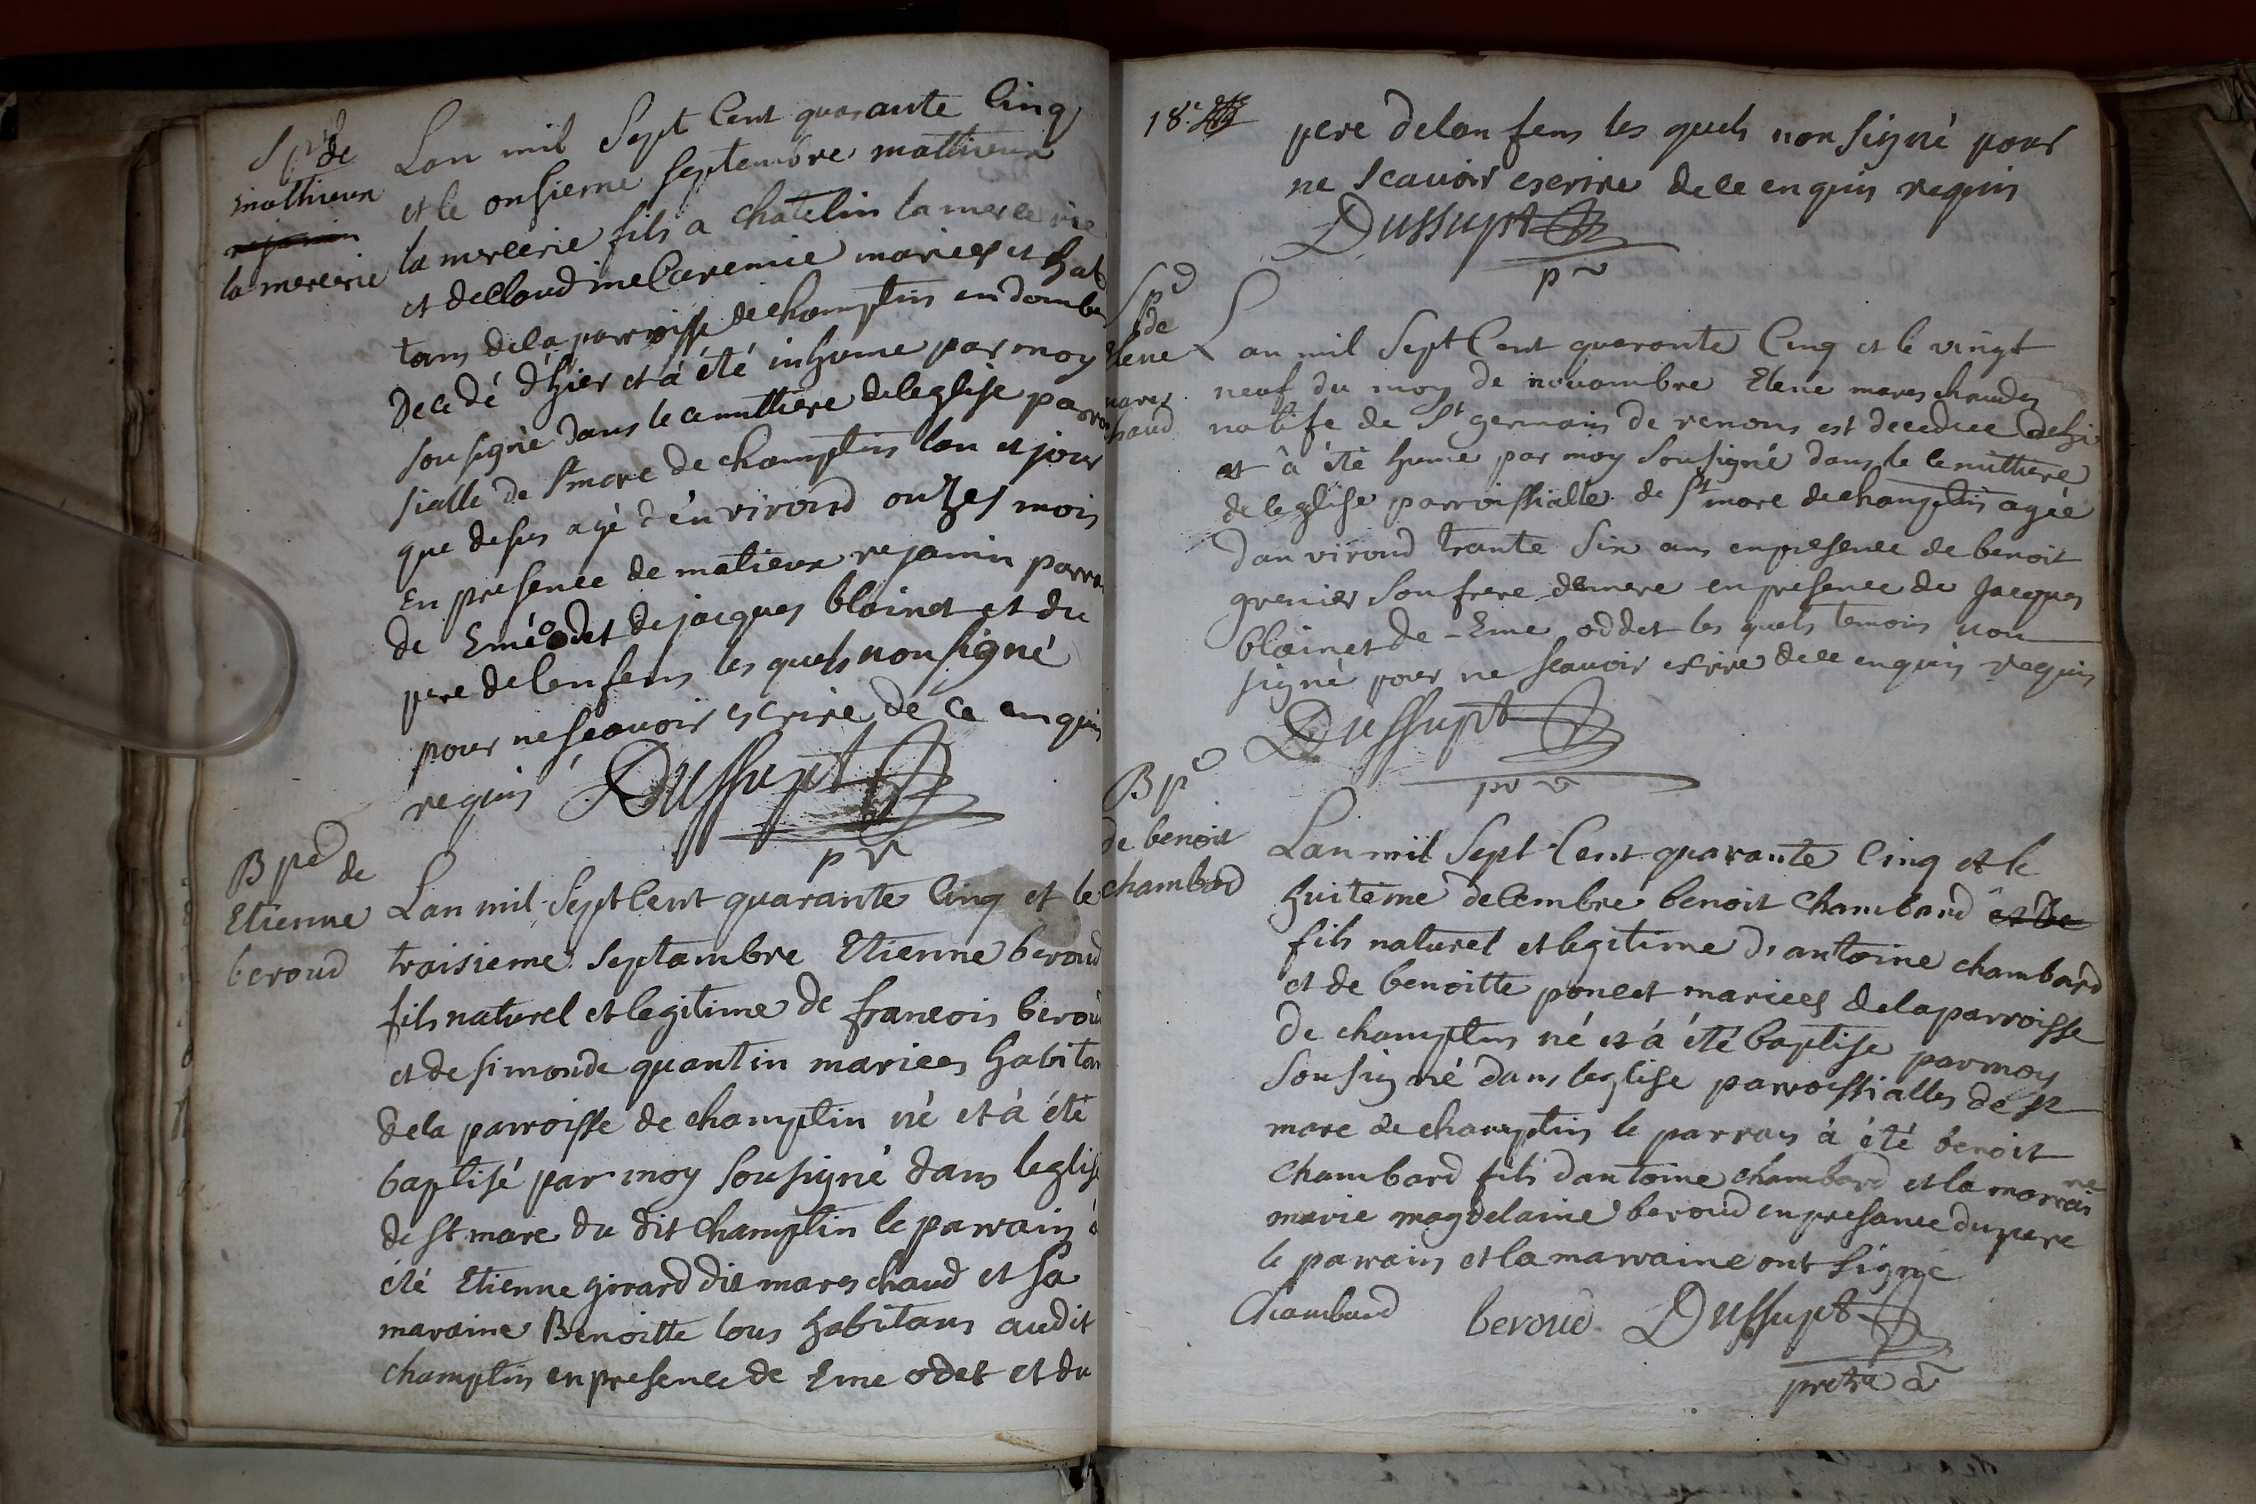 Sp^re de
mathieux
rejanin
la mercerie
Lan mil Sept Cent quarante Cinq
et le onsieme septembre mathieux
la mercerie fils a chatelin la mercerie
et de Claudine Caremie mariees et habi
tans de la parroisse de champtin en dombe
decedé d'hier et à été inhume par moy
sousigné dans le cemittiere de leglise parrois
sialle de st marc de champtin lan et jour
que desus agé d'environd onzes mois
en presence de matieux rejanin parra
de Emé odet de jacques blainet et du
pere de lenfens les quels non signé
pour ne scavoir escrire de ce enquis
requis Dussupt
p^r
Bp^e de
Etienne
beroud
Lan mil Sept Cent quarante Cinq et le
traisieme septambre Etienne beroud
fils naturel et legitime de francois beroud
et de simonde quantin mariees habitan
de la parroisse de champtin né et à été
baptisé par moy sousigné dans leglise
de st marc du dit champtin le parrain à
été Etienne girard dit mares chaud et sa
maraine Benoitte tous habitans audit
champtin en presence de Eme odet et du
18^e
pere de lan fens les quels non signé pour
ne scavoir escrire de ce enquis requis
Dussupt
p^r
Sp^e
de
Elene
mares
chaud
Lan mil Sept Cent quaronte Cinq et le vingt
neuf du moy de novambre Elene mares chaudes
natife de st germain de renons est decedee dehi
et à été hume par moy sousigné dans le cemittiere
de leglise parroissialle de st marc de champtin agée
danvirond trante six ans en presence de benoit
grenier son frere demere en presence de Jacques
blainet de Eme oddet les quels temoins non
signé pour ne scavoir escrire de ce enquis requis
Dussupt
p^r
Bp^e
de benoit
chambard
Lan mil Sept Cent quarante Cinq et le
huiteme decembre benoit Chambard et de
fils naturel et legitime d'antoine chambard
et de benoitte poncet mariees de la parroisse
de champtin né et à été baptise par moy
sousigné dans leglise parroissialles de st
marc de champtin le parrain à été benoit
chambard fils dantoine chambard et la marraine
marie magdelaine beroud en presance du pere
le parrain et la marraine ont signé
Chambard beroud Dussupt
pretre